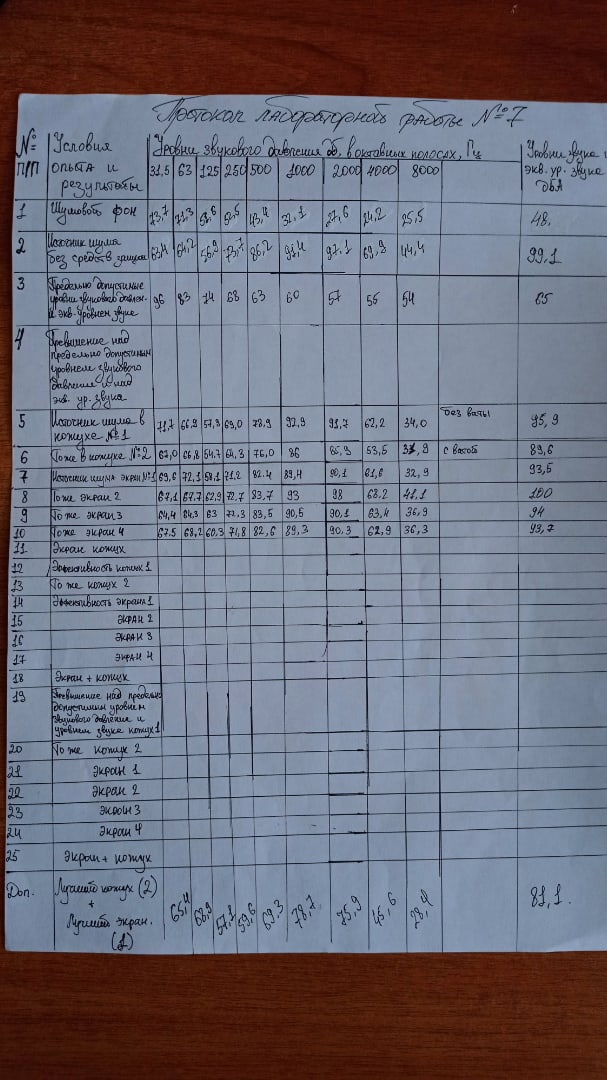 Протокол лабораторной работы №7
№ п/п Условия опыта и результаты Уровни звукового давления дБ, в октавных полосах, Гц Уровни звука и экв. ур. звука дБА
31,5 63 125 250 500 1000 2000 4000 8000
1 Шумовой фон 71,3 43,4 32,1 27,6 24,2 25,5 48.
2 Источник шума без средств защиты 63,4 64,2 56,9 73,7 86,2 91,4 97,1 69,9 44,4 99,1
3 Предельно допустимые уровни звукового давлен. и экв. уровнем звука 96 83 74 68 63 60 57 55 54 65
4 Превышение над предельно допустимым уровнем звукового давления и над экв. ур. звука
5 Источник шума в кожухе №1 71,7 66,9 57,3 69,0 78,9 92,9 91,7 62,2 34,0 без ваты 95,9
6 То же в кожухе №2 67,0 66,8 54.7 64,3 76,0 86 85,9 53,5 31,9 с ватой 89,6
7 Источник шума экран №1 69,6 72,1 58,1 71,2 82.4 89,4 90,1 61,6 32,9 93,5
8 То же экран 2 67,1 67.7 62,9 72,7 83,7 93 98 68.2 41,1 100
9 То же экран 3 64,4 64.3 63 72,3 83,5 90,5 90,1 63,4 36,9 94
10 То же экран 4 67.5 68,2 60,3 71,8 82,6 89,3 90.3 62,9 36,3 93,7
11 Экран кожух
12 Эффективность кожух 1
13 То же кожух 2
14 Эффективность экрана 1
15 экран 2
16 экран 3
17 экран 4
18 Экран + кожух
19 Превышение над предельно допустимым уровнем звукового давление и уровнем звука кожух 1
20 То же кожух 2
21 экран 1
22 экран 2
23 экран 3
24 экран 4
25 экран + кожух
Доп. Лучший кожух (2) + Лучший экран. (1) 65,4 68,9 57,1 59,6 69,3 78,7. 75,9 45,6 28,4 81,1.